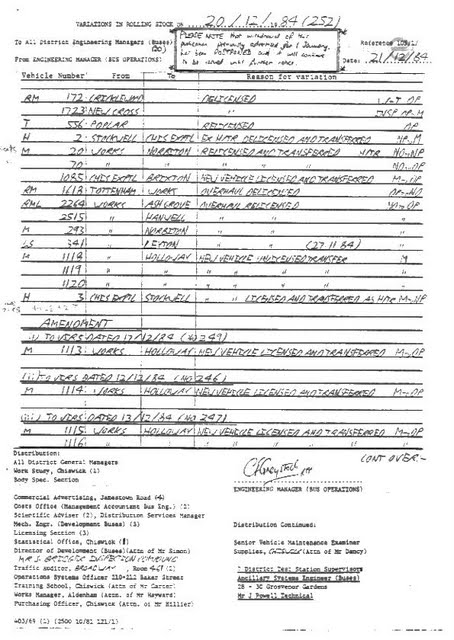 VARIATIONS IN ROLLING STOCK ON 20/12/84 (252)
PLEASE NOTE that withdrawal of this
publication previously advised for 1 January,
has been POSTPONED and it will continue
to be issued until further notice.
To All District Engineering Managers (Buses)
(20)
Reference
From ENGINEERING MANAGER (BUS OPERATIONS)
Date: 21/12/84
Vehicle Number From To Reason for variation
RM 172 CRICKLEWOOD DELICENSED
1723 NEW CROSS
T 556 POPLAR RELICENSED OP
H 2 CHIS EXPTL STOCKWELL EX HTR DELICENSED AND TRANSFERRED
M 20 WORKS NORBITON RELICENSED AND TRANSFERRED HTR NO-NP
70 " " NO-OP
1085 CHIS EXPTL BRIXTON NEW VEHICLE LICENSED AND TRANSFERRED M-OP
RM 1613 TOTTENHAM WORKS OVERHAUL DELICENSED OP-NO
RML 2264 WORKS ASH GROVE OVERHAUL RELICENSED NO-OP
2515 " HANWELL " " "
M 293 " NORBITON " " "
LS 341 " LEYTON " " (27.11.84) "
M 1118 " HOLLOWAY NEW VEHICLE UNLICENSED TRANSFER M
1119 " " " " " "
1120 " " " " " "
H 3 CHIS EXPTL STOCKWELL " " LICENSED AND TRANSFERRED AS HTR M-NP
AMENDMENT
(i) TO VERS DATED 17/12/84 (NO 249)
M 1113 WORKS HOLLOWAY NEW VEHICLE LICENSED AND TRANSFERRED M-OP
(ii) TO VERS DATED 12/12/84 (NO 246)
M 1114 WORKS HOLLOWAY NEW VEHICLE LICENSED AND TRANSFERRED M-OP
(iii) TO VERS DATED 13/12/84 (NO 247)
M 1115 WORKS HOLLOWAY NEW VEHICLE LICENSED AND TRANSFERRED M-OP
1116 " " " " " "
CONT OVER-
Distribution:
All District General Managers
Work Study, Chiswick (1)
Body Spec. Section
ENGINEERING MANAGER (BUS OPERATIONS)
Commercial Advertising, Jamestown Road (4)
Costs Office (Management Accountant Bus Eng.) (2)
Scientific Adviser (2), Distribution Services Manager
Mech. Engr. (Development Buses) (3)
Licensing Section (3)
Statistical Office, Chiswick (1)
Director of Development (Buses) (Attn of Mr Simon)
Traffic Auditor, BROADWAY, Room
Operations Systems Officer 210-212 Baker Street
Training School, Chiswick (Attn of Mr Carter)
Works Manager, Aldenham (Attn of Mr Hayward)
Purchasing Officer, Chiswick (Attn of Mr Hillier)
Distribution Continued:
Senior Vehicle Maintenance Examiner
Supplies, Chiswick (Attn of Mr Dency)
Ancillary Systems Engineer (Buses)
28 - 30 Grosvenor Gardens
Mr J Powell Technical